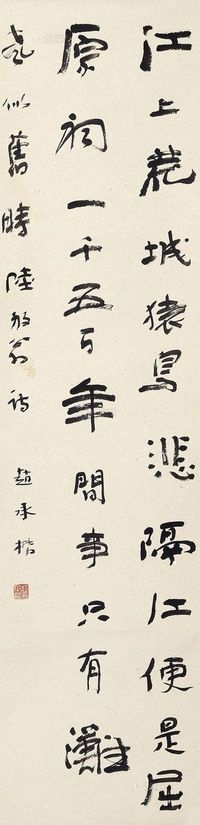 江上荒城猿鸟悲隔江便是屈
原祠一千五百年間事只有灘
声似舊時陸放翁诗 趙承楷